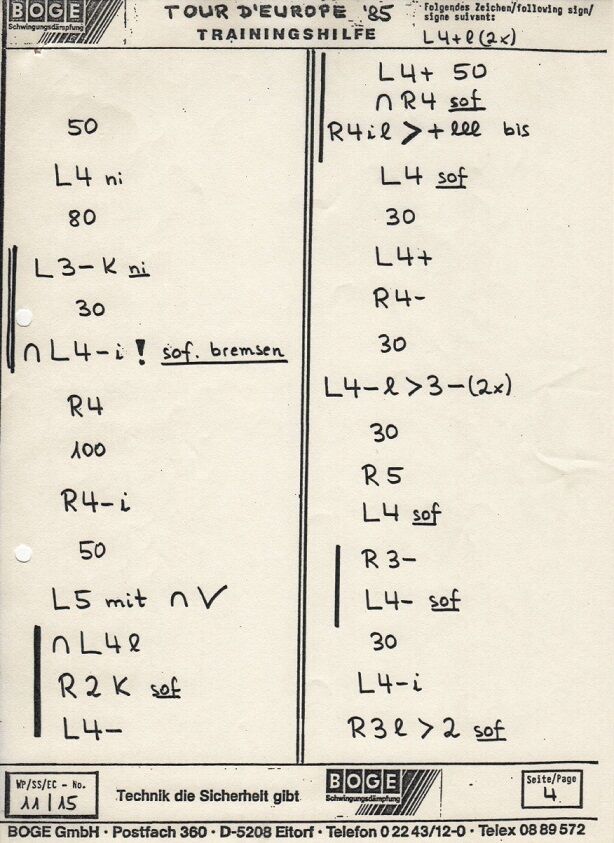 BOGE
Schwingungsdämpfung
TOUR D'EUROPE '85
TRAININGSHILFE
Folgendes Zeichen/following sign/
signe suivant:
L4+l(2x)
50
L4 ni
80
L3-K ni
30
∩L4-i! sof. bremsen
R4
100
R4-i
50
L5 mit ∩ V
∩L4l
R2K sof
L4-
L4+ 50
∩R4 sof
R4il > + lll bis
L4 sof
30
L4+
R4-
30
L4-l>3-(2x)
30
R5
L4 sof
R3-
L4- sof
30
L4-i
R3l>2 sof
WP/SS/EC - No.
11/15
Technik die Sicherheit gibt
BOGE
Schwingungsdämpfung
Seite/Page
4
BOGE GmbH · Postfach 360 · D-5208 Eitorf · Telefon 0 22 43/12-0 · Telex 08 89 572